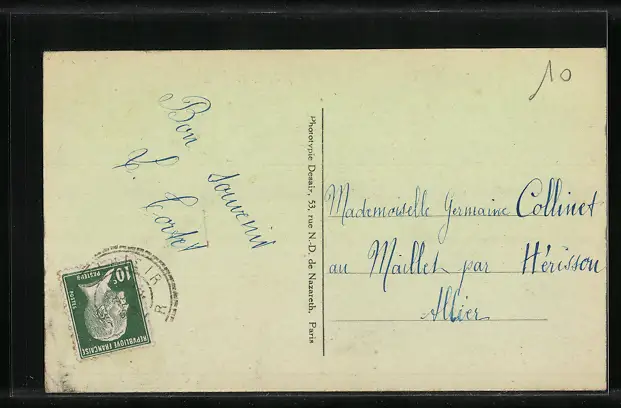 10
Bon souvenir
Phototypie Desaix, 53, rue N.-D. de Nazareth, Paris
Mademoiselle Germaine Collinet
au Maillet par Hérisson
Allier
10c
POSTES
RÉPUBLIQUE FRANÇAISE